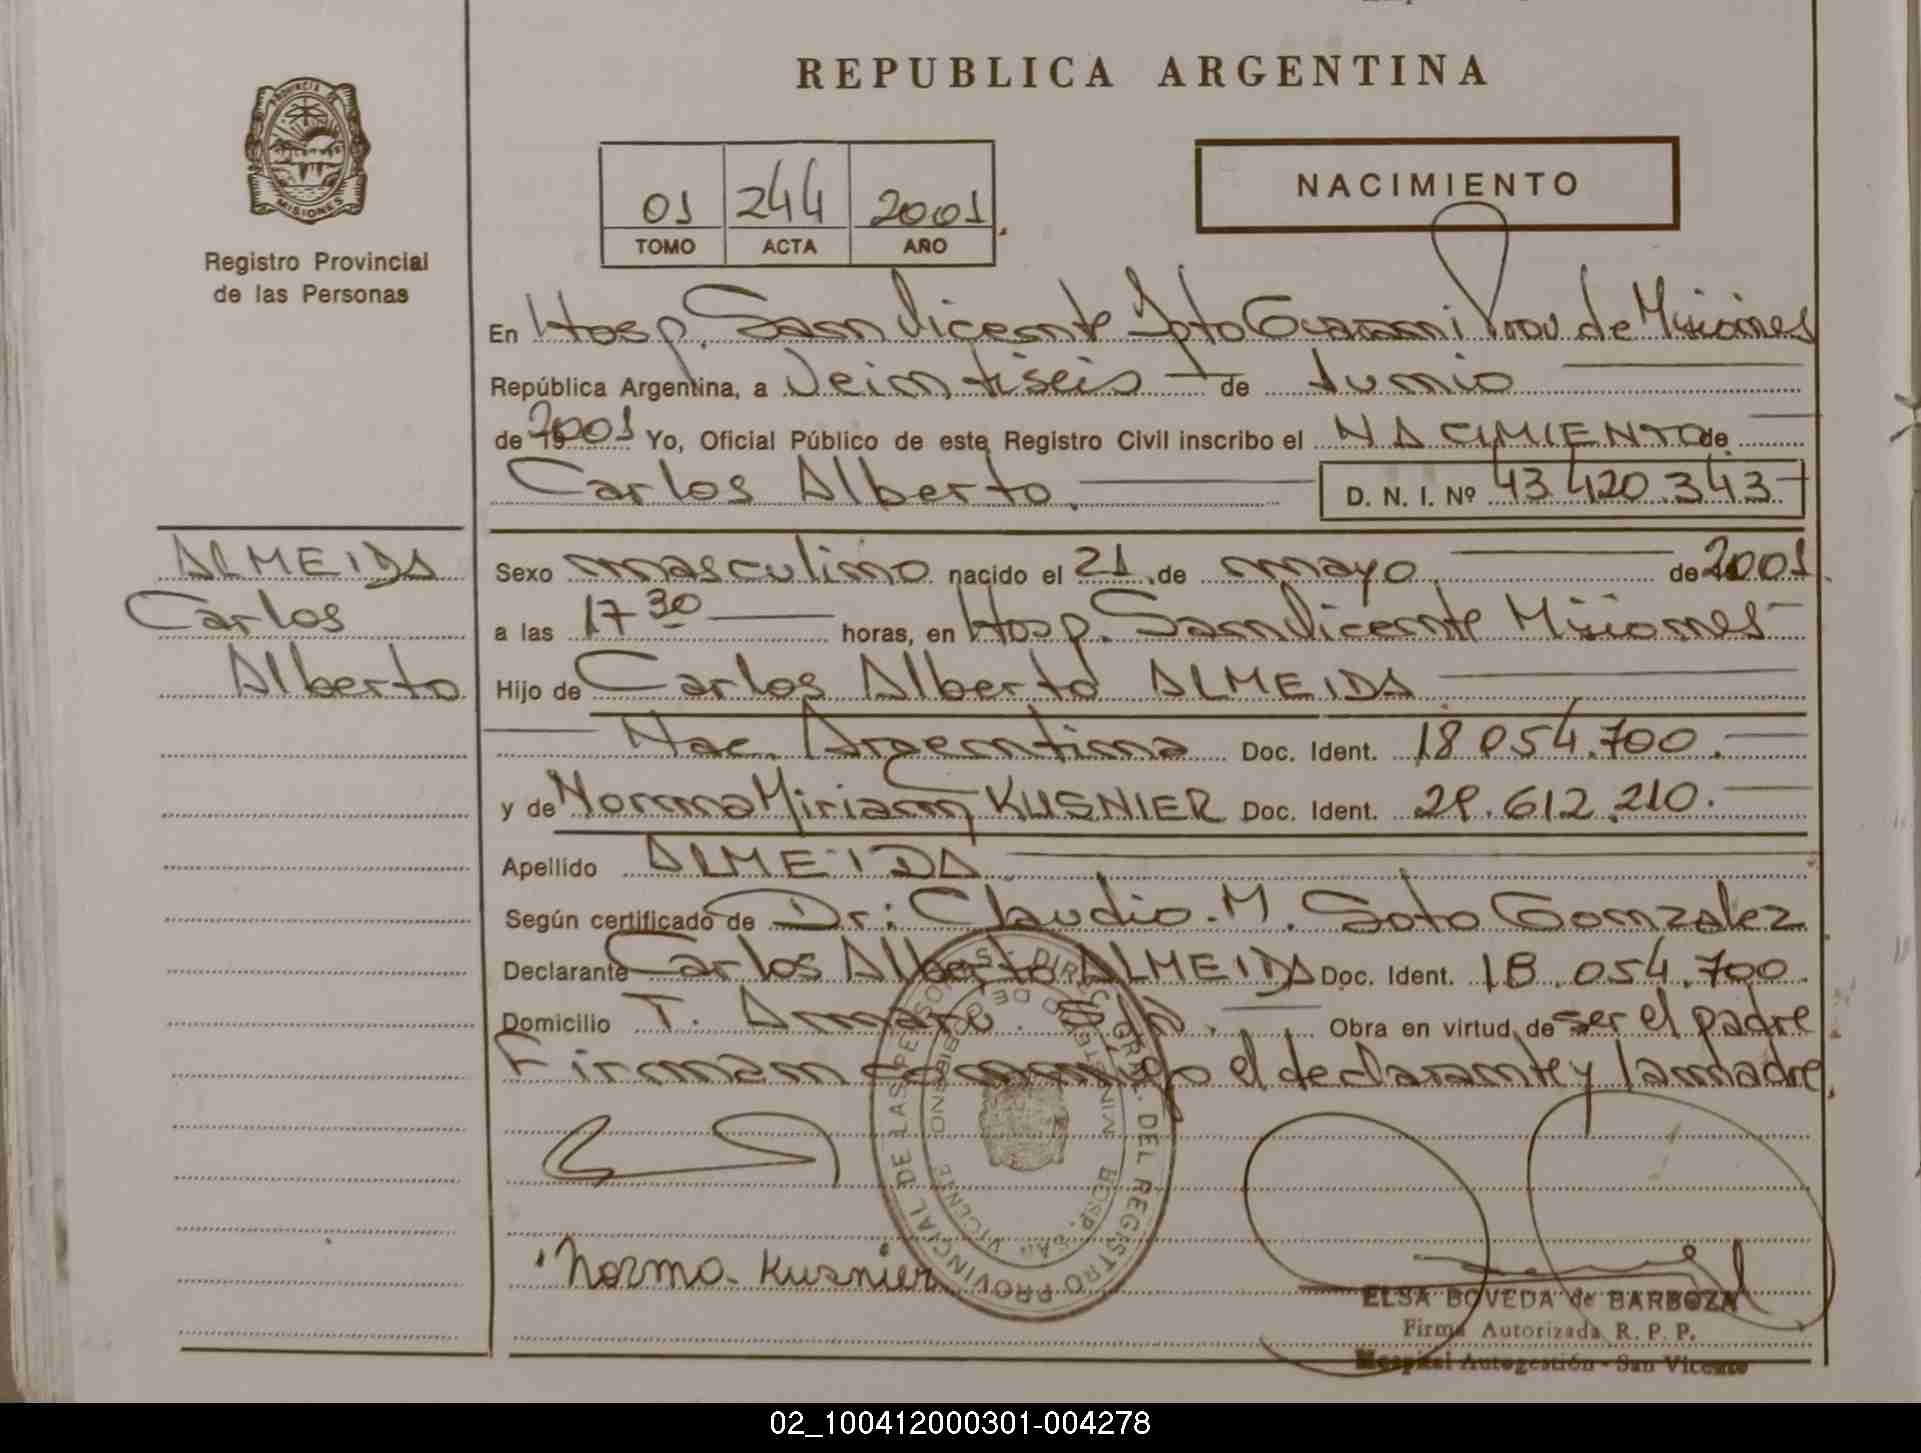 REPUBLICA ARGENTINA
PROVINCIA DE
MISIONES
Registro Provincial
de las Personas
01 244 2001
TOMO ACTA AÑO
NACIMIENTO
En Hosp. San Vicente Dpto Guarani Prov. de Misiones
República Argentina, a Veintiseis de Junio
de 2001 Yo, Oficial Público de este Registro Civil inscribo el NACIMIENTO de
Carlos Alberto. D. N. I. Nº 43.420.343
ALMEIDA
Carlos
Alberto
Sexo masculino nacido el 21 de mayo de 2001
a las 17 30 horas, en Hosp. San Vicente Misiones
Hijo de Carlos Alberto ALMEIDA
Nac. Argentina Doc. Ident. 18.054.700.
y de Norma Miriam KUSNIER Doc. Ident. 29.612.210.
Apellido ALMEIDA
Según certificado de Dr: Claudio. M. Soto Gonzalez
Declarante Carlos Alberto ALMEIDA Doc. Ident. 18.054.700.
Domicilio T. Amaro. S/n. Obra en virtud de ser el padre
Firman conmigo el declarante y la madre.
Norma. Kusnier
ELSA BOVEDA de BARBOZA
Firma Autorizada R. P. P.
Hospital Autogestión - San Vicente
DIREC. GRAL. DEL REGISTRO PROVINCIAL DE LAS PERSONAS
HOSP. SAN VICENTE
02_100412000301-004278